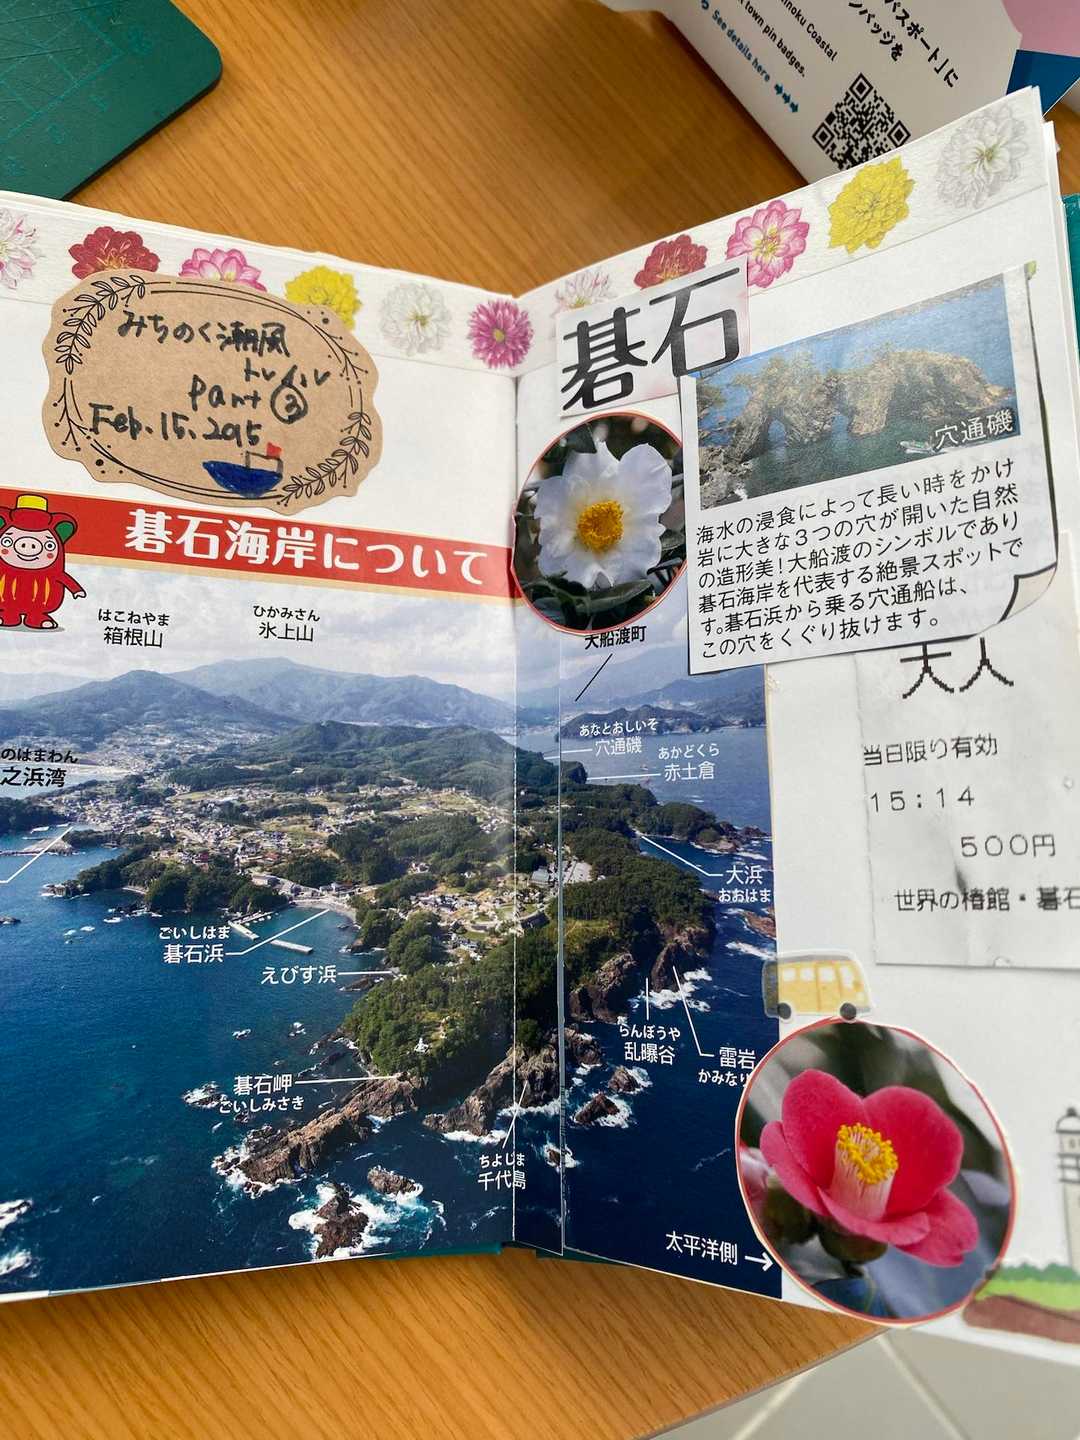 パスポート」に
ンバッジを
inoku Coastal
town pin badges.
See details here
みちのく潮風
トレイル
part ③
Feb.15.2015
碁石
穴通磯
海水の浸食によって長い時をかけ
岩に大きな3つの穴が開いた自然
の造形美!大船渡のシンボルであり
碁石海岸を代表する絶景スポットで
す。碁石浜から乗る穴通船は、
この穴をくぐり抜けます。
碁石海岸について
はこねやま
箱根山
ひかみさん
氷上山
大船渡町
のはまわん
之浜湾
あなとおしいそ
穴通磯
あかどくら
赤土倉
大浜
おおはま
ごいしはま
碁石浜
えびす浜
らんぼうや
乱曝谷
雷岩
かみなり
碁石岬
ごいしみさき
ちよじま
千代島
太平洋側
大人
当日限り有効
15:14
500円
世界の椿館・碁石